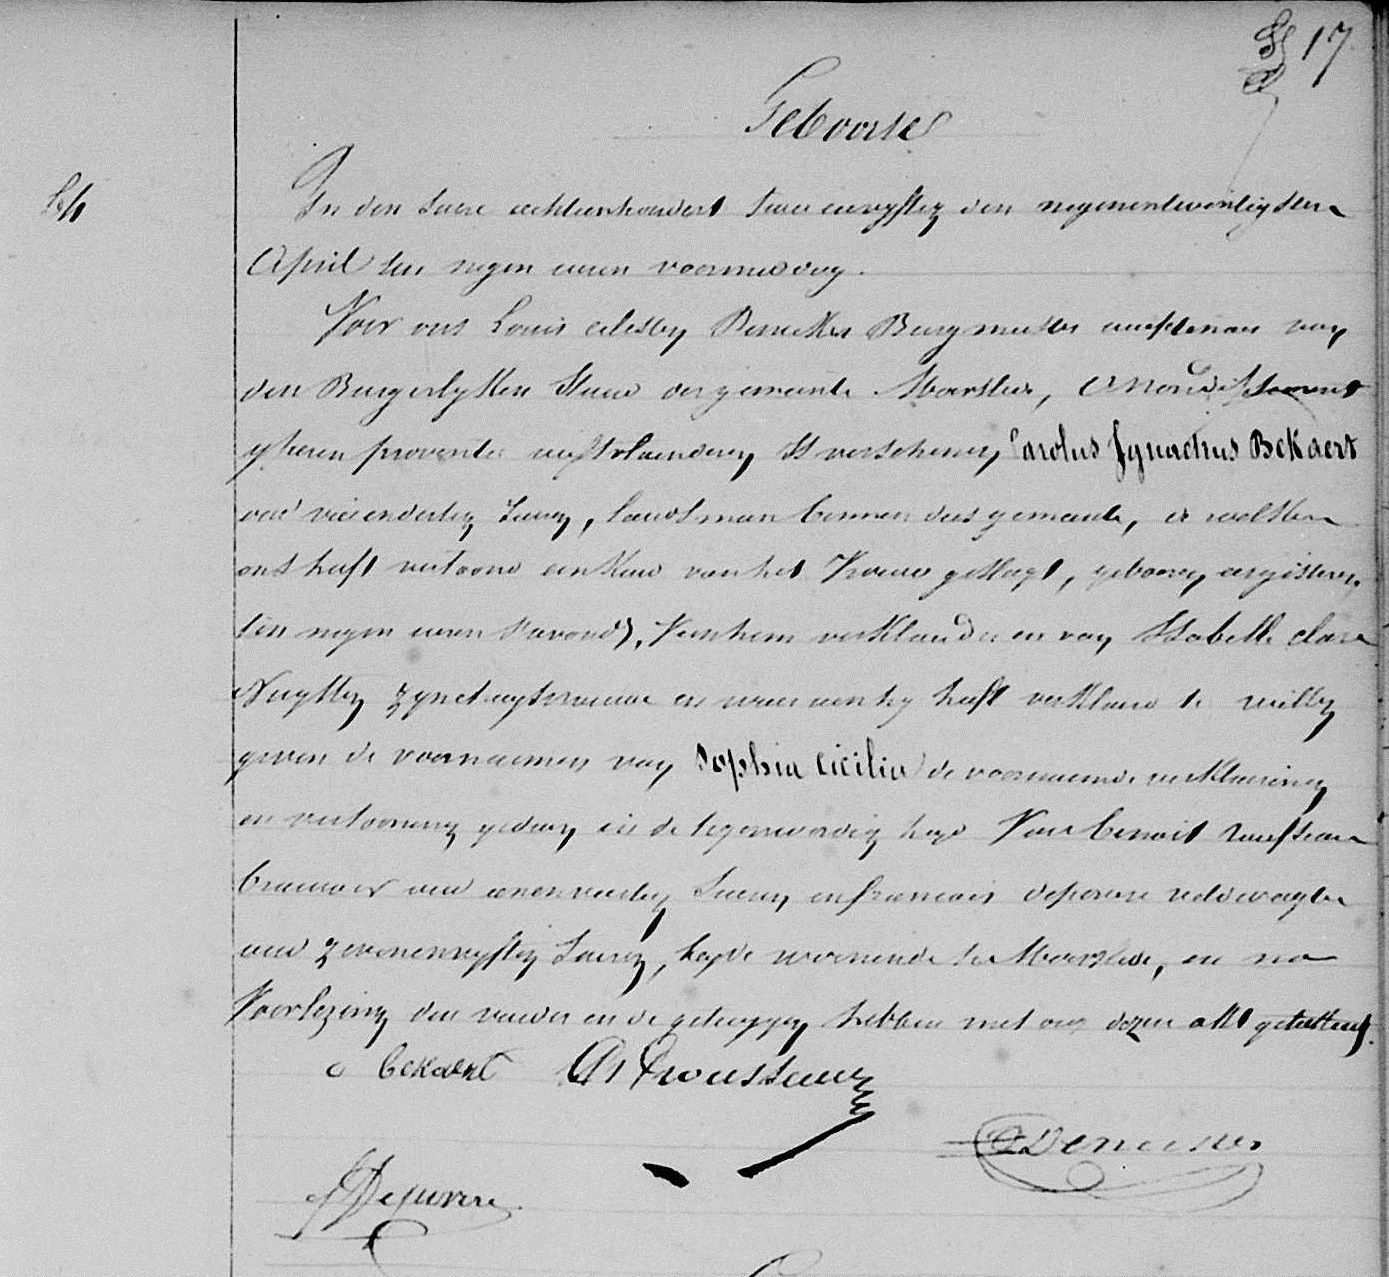 17
Geboorte
In den Jaere achtienhondert twee envyftig den negenentwintigsten
April ten negen uren voormiddag.
Voor ons Louis Burgmeester amptenaer van
den Burgerlyken Staed der gemeente Moorslede, arrondissement
yperen provintie westvlaenderen, is verschenen, Carolus Ignachus Bekaert
oud vierendertig Jaeren, Landsman binnen dees gemeente, de welken
ons heeft vertoond een Kind van het Vrouw geslagt, geboren, eergisteren
ten negen uren s'avonds, van hem verklaerder en van Isabelle clara
Nuytten zyne huysvrouw en waer aen hy heeft verklaerd te willen
geven de voornaemen van Sophia Cicilia de voornoemde verklaering
en vertooning gedaen in de tegenwoordigheyd Van benoit
brauwer oud eenenveertig Jaeren en francois Deferere veldwagter
oud zevenenvyftig Jaeren, beyde woonende te Moorslede, en na
Voorlezing den vader en de getuygen hebben met ons dezen akt geteekend.
c bekaert